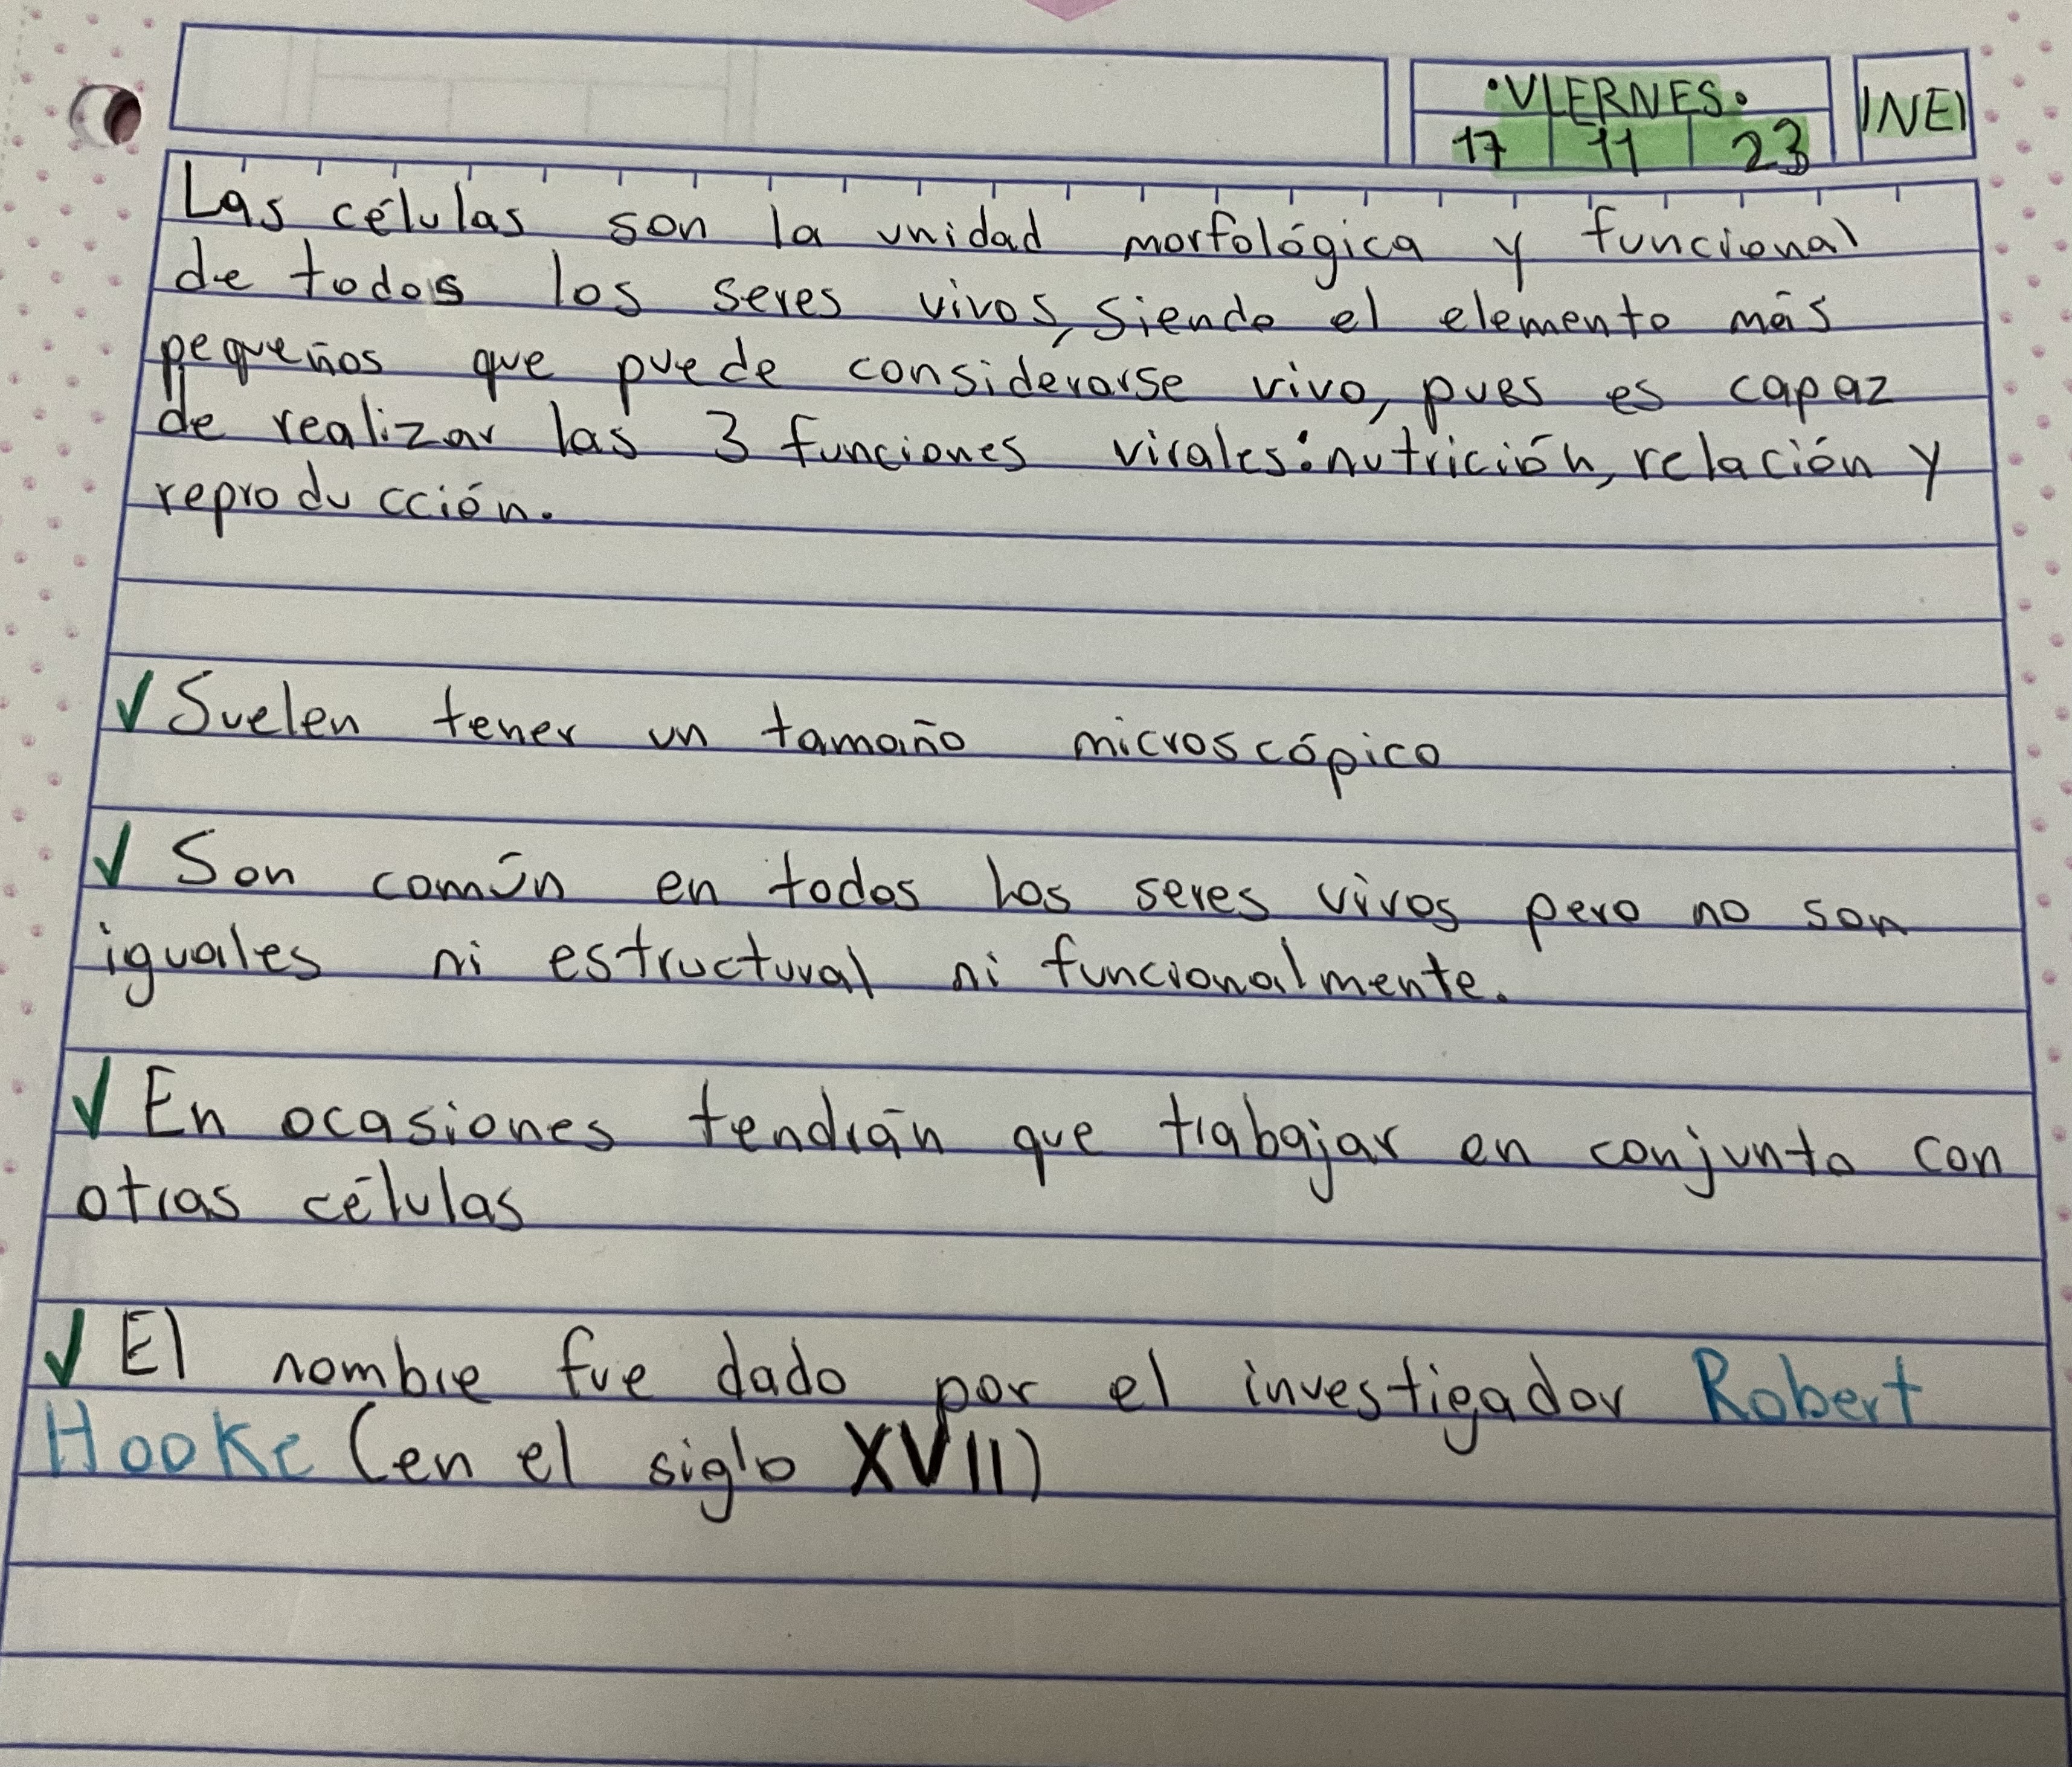 •VIERNES•
17 11 23
INEI
Las células son la unidad morfológica y funcional
de todos los seres vivos, siendo el elemento más
pequeños que puede considerarse vivo, pues es capaz
de realizar las 3 funciones virales: nutrición, relación y
reproducción.
✓ Suelen tener un tamaño microscópico
✓ Son común en todos los seres vivos pero no son
iguales ni estructural ni funcionalmente.
✓ En ocasiones tendrán que trabajar en conjunto con
otras células
✓ El nombre fue dado por el investigador Robert
Hooke (en el siglo XVII)